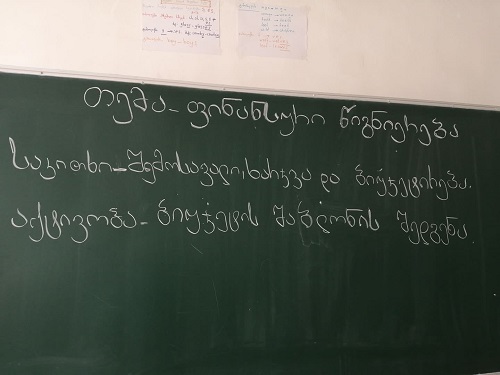 თემა - ფინანსური წიგნიერება
საკითხი - შემოსავალი, ხარჯვა და ბიუჯეტირება.
აქტივობა - ბიუჯეტის შაბლონის შედგენა.